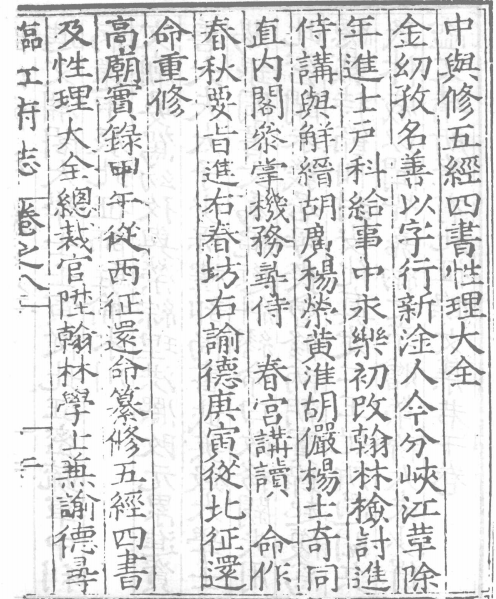 中與修五經四書性理大全
金幼孜名善以字行新淦人今分峽江革除
年進士戶科給事中永樂初改翰林檢討進
侍講與解縉胡廣楊榮黃淮胡儼楊士奇同
直内閣叅掌機務尋侍 春宮講讀 命作
春秋要旨進右春坊右諭德庚寅從北征還
命重修
高廟實錄甲午從西征還命纂修五經四書
及性理大全總裁官陞翰林學士兼諭德尋
臨江府志 卷之八 十二